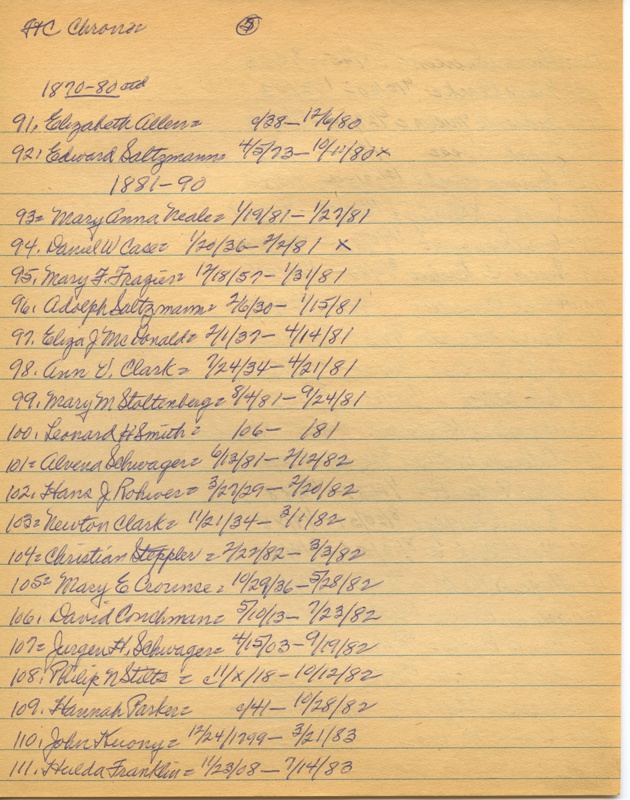 HC Chrono= ⑤
1870-80 ctd
91. Elizabeth Allen= c/38- 12/6/80
92. Edward Saltzmann= 4/5/73- 10/11/80 x
1881-90
93= Mary Anna Neale= 1/19/81- 1/27/81
94. Daniel W Case= 1/20/36- 2/2/81 x
95. Mary F. Frazier= 12/18/57- 1/31/81
96. Adolph Saltzmann= 2/6/30- 1/15/81
97. Eliza J McDonald= 2/1/37- 4/14/81
98. Ann V. Clark= 7/24/34- 4/21/81
99. Mary M Stoltenberg= 8/4/81- 9/24/81
100. Leonard H Smith= /06- /81
101= Alvena Schwager= 6/13/81- 2/12/82
102. Hans J. Rohwer= 3/27/29- 2/20/82
103= Newton Clark= 11/21/34- 3/1/82
104= Christian Stoppler= 2/22/82- 3/3/82
105= Mary E Crounse= 10/29/36- 5/28/82
106. David Conchman= 5/10/13- 7/23/82
107= Jurgen H. Schwager= 4/15/03- 9/19/82
108. Philip N Stilts= c11/x/18- 10/12/82
109. Hannah Parker= c/41- 10/28/82
110. John Kuony= 12/24/1799- 3/21/83
111. Hulda Franklin= 11/23/08- 7/14/83